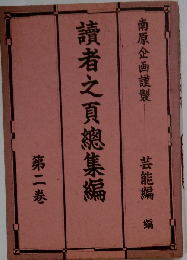 南原企画謹製
芸能編 編
讀者之頁總集編
第二巻